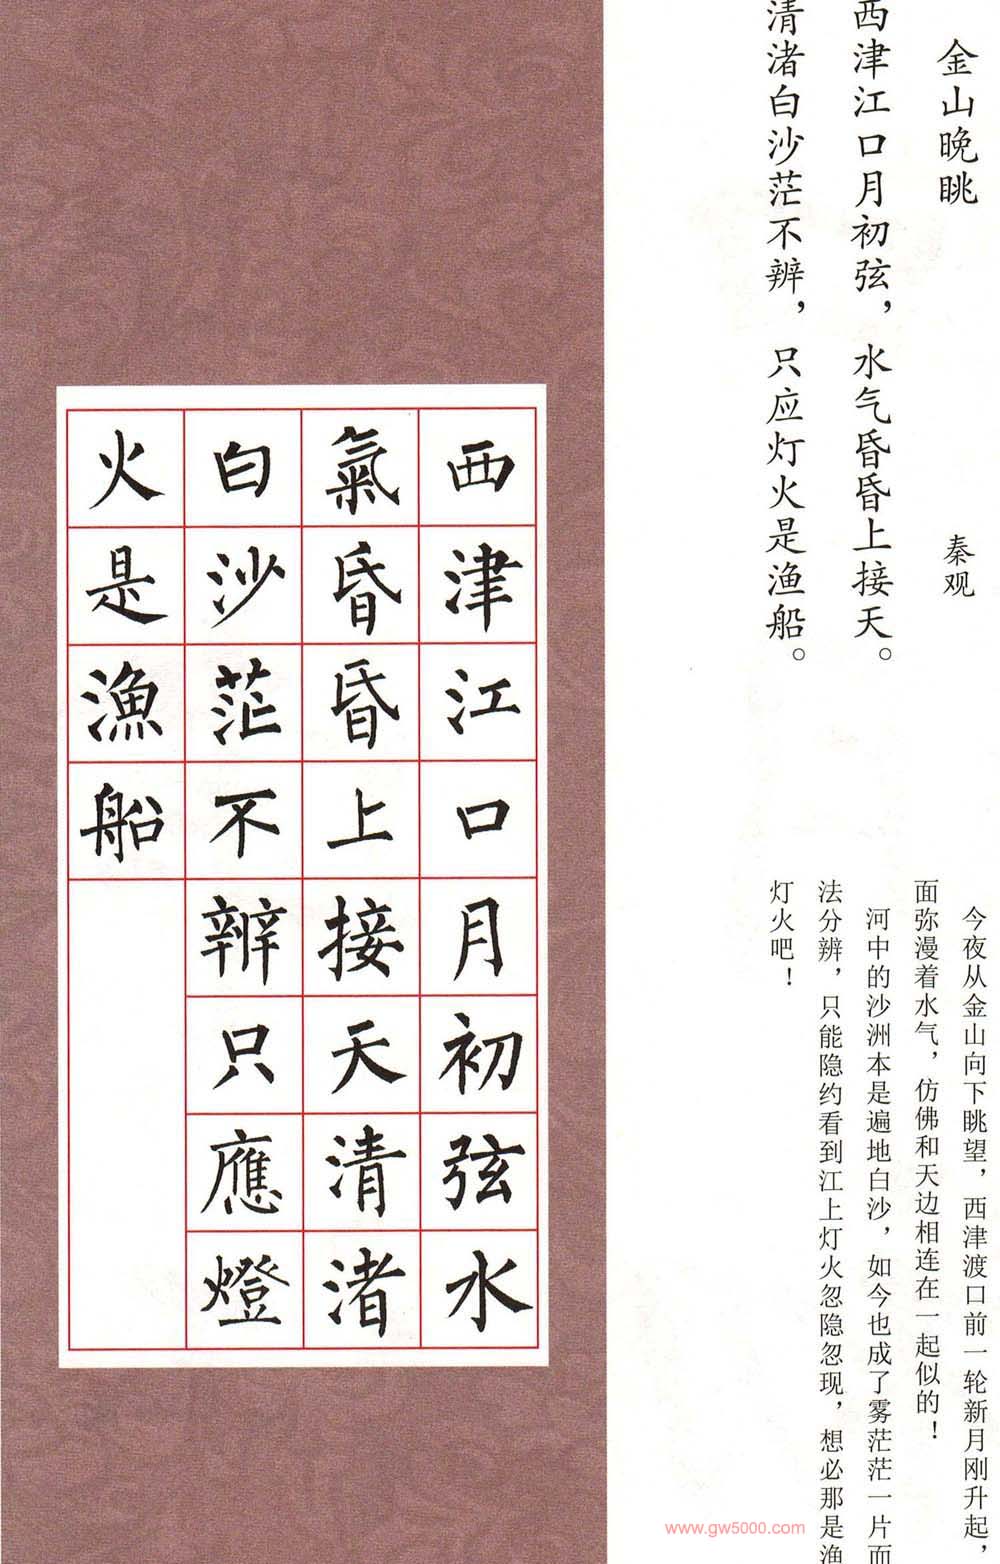 金山晚眺
秦观
西津江口月初弦，水气昏昏上接天。
清渚白沙茫不辨，只应灯火是渔船。
今夜从金山向下眺望，西津渡口前一轮新月刚升起，
面弥漫着水气，仿佛和天边相连在一起似的！
河中的沙洲本是遍地白沙，如今也成了雾茫茫一片而
法分辨，只能隐约看到江上灯火忽隐忽现，想必那是渔
灯火吧！
西津江口月初弦水
氣昏昏上接天清渚
白沙茫不辨只應燈
火是漁船
www.gw5000.com